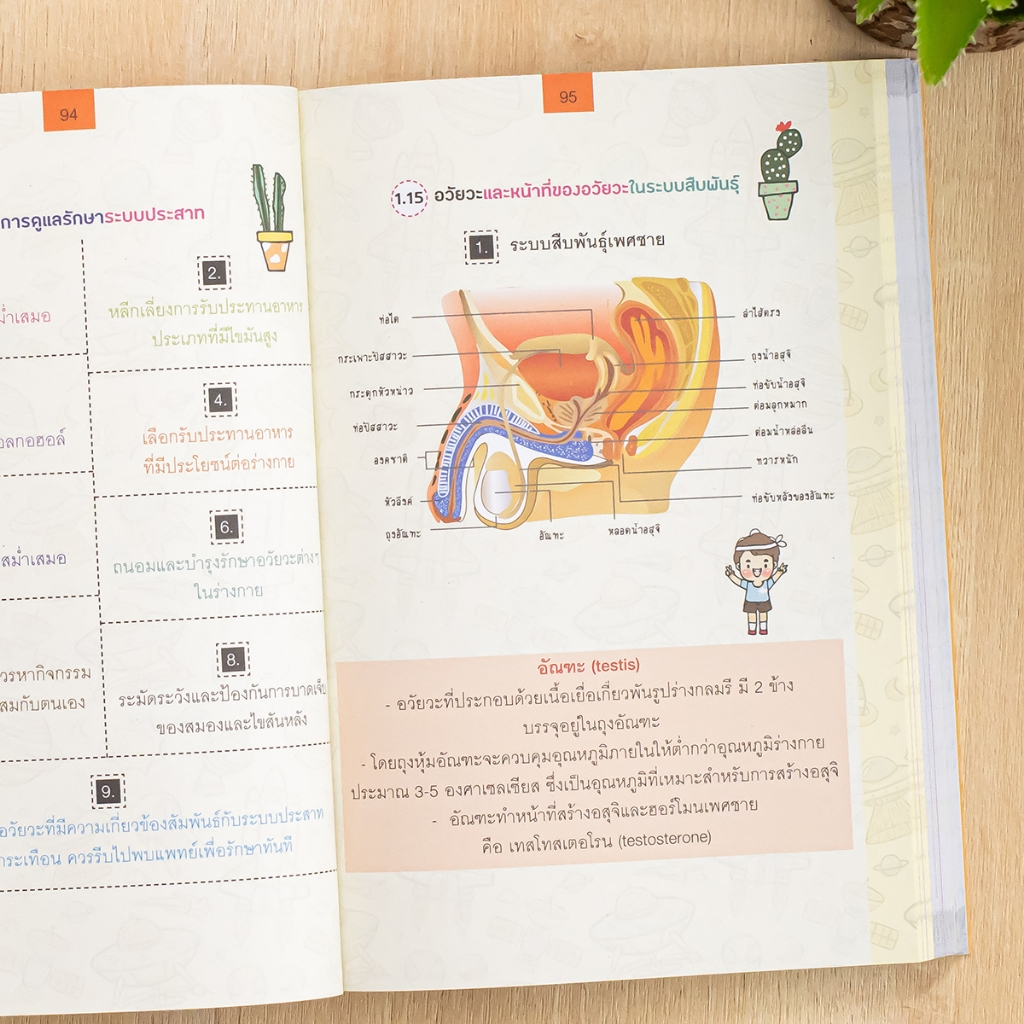 94
การดูแลรักษาระบบประสาท
2.
หลีกเลี่ยงการรับประทานอาหาร
ประเภทที่มีไขมันสูง
4.
เลือกรับประทานอาหาร
ที่มีประโยชน์ต่อร่างกาย
6.
ถนอมและบำรุงรักษาอวัยวะต่างๆ
ในร่างกาย
8.
ระมัดระวังและป้องกันการบาดเจ็บ
ของสมองและไขสันหลัง
9.
อวัยวะที่มีความเกี่ยวข้องสัมพันธ์กับระบบประสาท
กระเทือน ควรรีบไปพบแพทย์เพื่อรักษาทันที
95
1.15 อวัยวะและหน้าที่ของอวัยวะในระบบสืบพันธุ์
1. ระบบสืบพันธุ์เพศชาย
ท่อไต
กระเพาะปัสสาวะ
กระดูกหัวหน่าว
ท่อปัสสาวะ
องคชาติ
หัวลึงค์
ถุงอัณฑะ
อัณฑะ
หลอดน้ำอสุจิ
ลำไส้ตรง
ถุงน้ำอสุจิ
ท่อขับน้ำอสุจิ
ต่อมลูกหมาก
ต่อมน้ำหล่อลื่น
ทวารหนัก
ท่อขับหลังของอัณฑะ
อัณฑะ (testis)
- อวัยวะที่ประกอบด้วยเนื้อเยื่อเกี่ยวพันรูปร่างกลมรี มี 2 ข้าง
บรรจุอยู่ในถุงอัณฑะ
- โดยถุงหุ้มอัณฑะจะควบคุมอุณหภูมิภายในให้ต่ำกว่าอุณหภูมิร่างกาย
ประมาณ 3-5 องศาเซลเซียส ซึ่งเป็นอุณหภูมิที่เหมาะสำหรับการสร้างอสุจิ
- อัณฑะทำหน้าที่สร้างอสุจิและฮอร์โมนเพศชาย
คือ เทสโทสเตอโรน (testosterone)